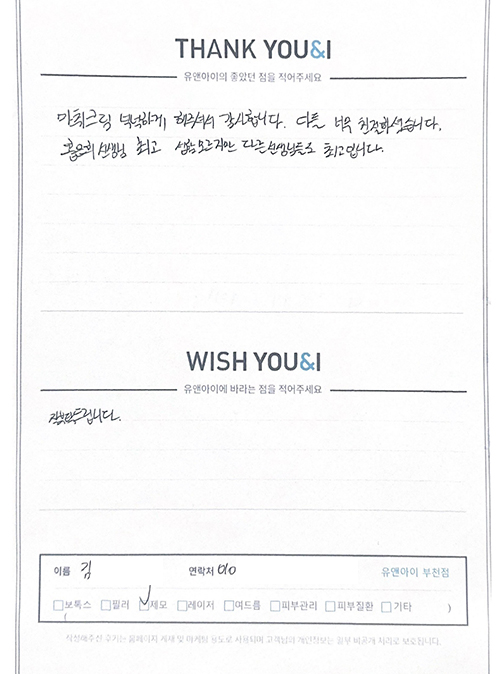 THANK YOU&I
유앤아이의 좋았던 점을 적어주세요
마취크림 넉넉하게 해주셔서 감사합니다. 다들 너무 친절하셨습니다.
홍윤희 선생님 최고 성함 모르지만 다른 선생님들도 최고입니다.
WISH YOU&I
유앤아이에 바라는 점을 적어주세요
잘부탁드립니다.
이름 김 연락처 010 유앤아이 부천점
보톡스 필러 제모 레이저 여드름 피부관리 피부질환 기타 )
(
작성해주신 후기는 홈페이지 게재 및 마케팅 용도로 사용되며 고객님의 개인정보는 일부 비공개 처리로 보호됩니다.